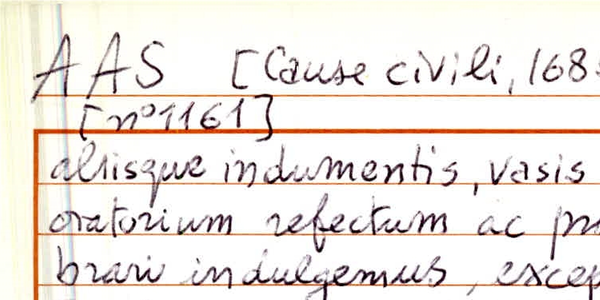 AAS [Cause civili, 168
[nº1161]
aliisque indumentis, vasis
oratorium refectum ac
brari indulgemus,